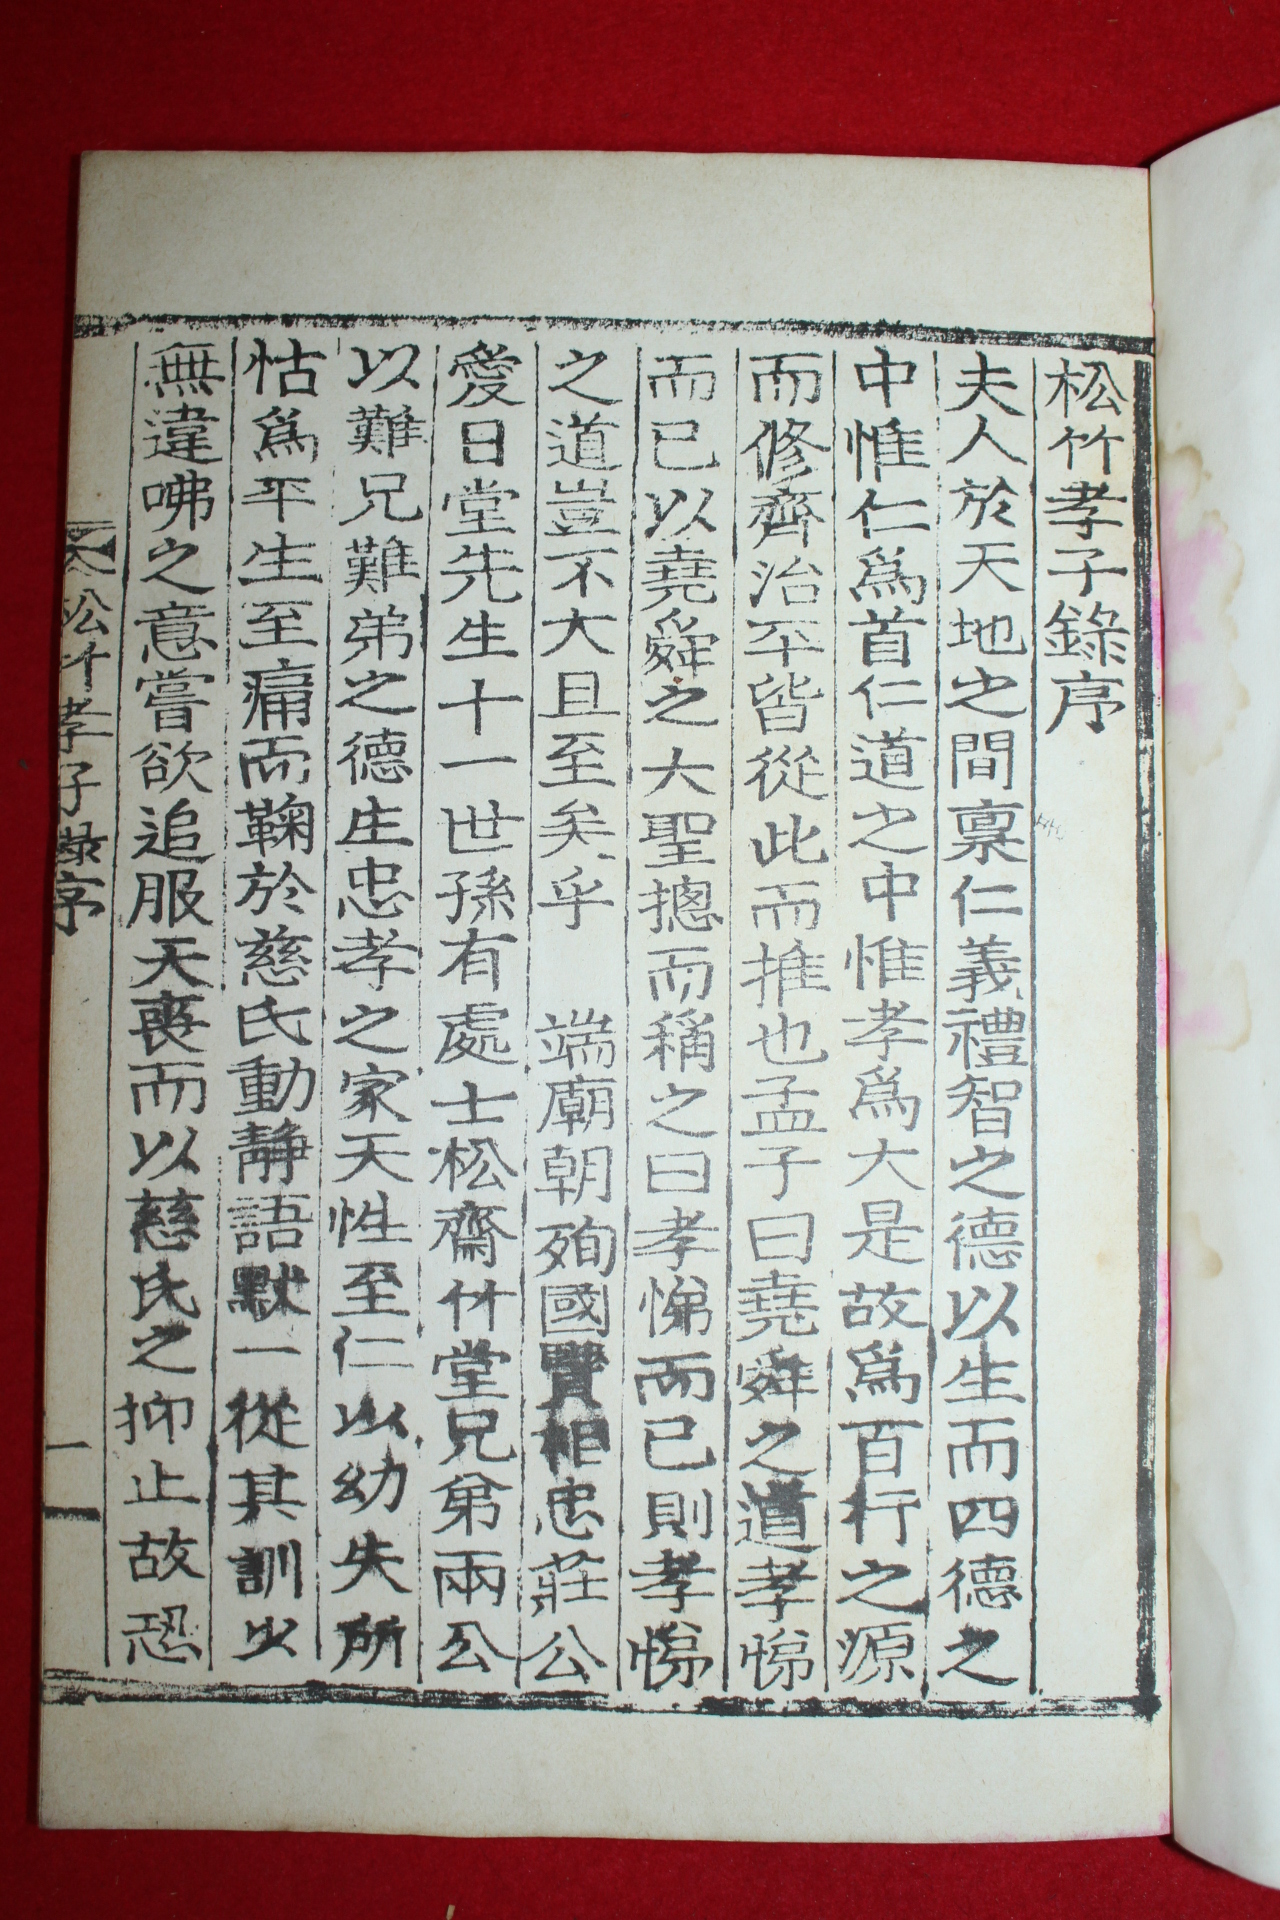 松竹孝子錄序
夫人於天地之間禀仁義禮智之德以生而四德之
中惟仁爲首仁道之中惟孝爲大是故爲百行之源
而修齊治平皆從此而推也孟子曰堯舜之道孝悌
而已以堯舜之大聖摠而稱之曰孝悌而已則孝悌
之道豈不大且至矣乎　端廟朝殉國賢相忠莊公
愛日堂先生十一世孫有處士松齋竹堂兄弟兩公
以難兄難弟之德生忠孝之家天性至仁以幼失所
怙爲平生至痛而鞠於慈氏動靜語默一從其訓少
無違咈之意嘗欲追服天喪而以慈氏之抑止故恐
松竹孝子錄序
一